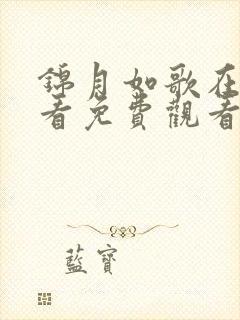 錦月如歌在
看免費觀看
藍寶